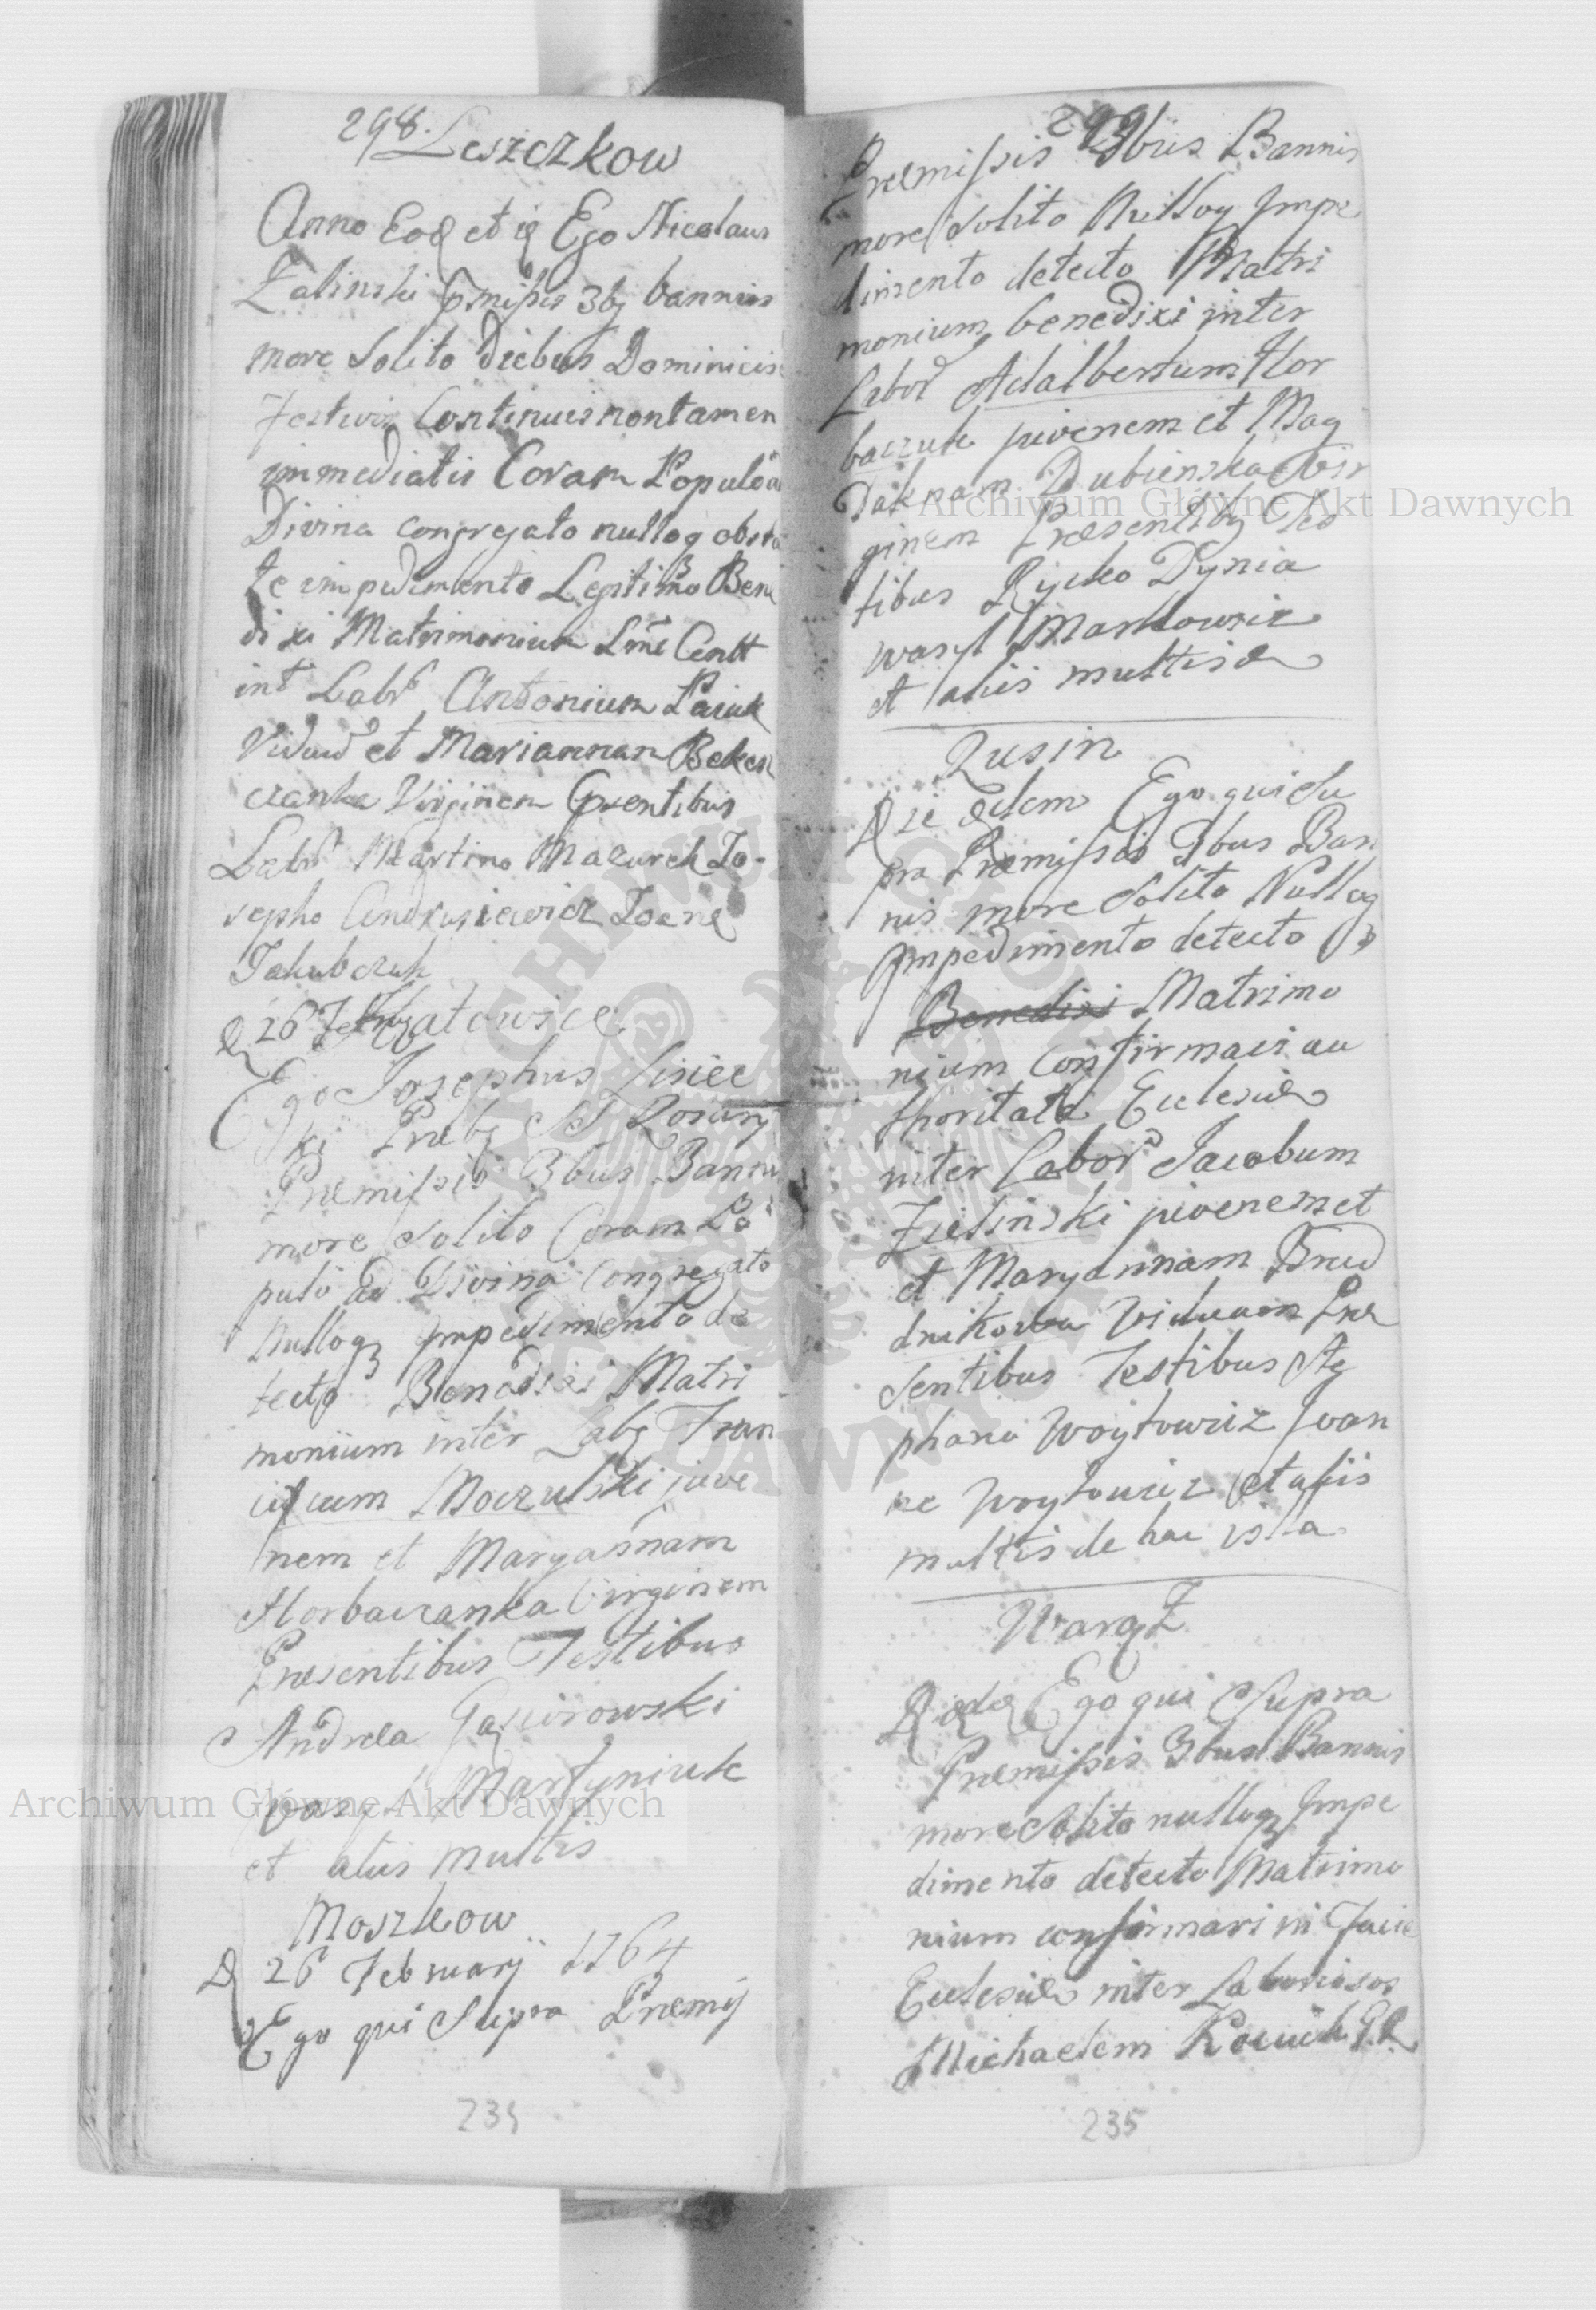 298.
Leszczkow
Anno Eod et id Ego Nicolaus
Zalinski pmissis 3bg bannis
more Solito diebus Dominicis
Festivis Continuis non tamen
immediatis Coram Populo ad
Divina congregato nulloq obsta
te impedimento Legitimo Bene
dixi Matrimonium
int Labr Antonium Paiuk
Viduu et Mariannan Bekes
czanka Virginem Gpsentibus
Labr Martino Mazurek Jo-
sepho Andrusiewicz Joane
Jakubczuk
D 26 Febr
Ego Josephus Lisiec
ki Præbg SS Rosarij
Præmissis 3bus Bannis
more Solito Coram Po
pulo ad Divina Congregato
Nulloqz Impedimento de
tecto Benedixi Matri
monium inter Labg Fran
ciscum Moczulski juve
nem et Maryannam
Horbaczanka Virginem
Præsentibus Testibus
Andrea Gąsiorowski
Wasyl Martyniuk
et aliis multis
Moszkow
D 26 February 1764
Ego qui Supra Præmis
234
299
Præmissis 3bus Bannis
more Solito Nulloq Impe
dimento detecto Matri
monium benedixi inter
Labor Adalbertum Hor
baczuk juvenem et Mag
dalenam Dubienska Vir
ginem Præsentibg Tes
tibus Rycko Dynia
Wasyl Markowicz
et aliis multis
Rusin
Die Edem Ego qui Su
pra Præmissis 3bus Ban
nis more Solito Nulloq
Impedimento detecto
Benedixi Matrimo
nium Confirmavi au
thoritate Eclesiæ
inter Labor Jacobum
Zielinski juvenem et
et Maryannam Brud
dnikowa Viduam Præ
Sentibus Testibus Ste
phano Woytowicz Joan
ne Woytowicz et aliis
multis de hac villa
Waręż
D ede Ego qui Supra
Præmissis 3bus Bannis
more Solito nulloqz Impe
dimento detecto Matrimo
nium confirmavi in Facie
Eclesiæ inter Laboriosos
Michaelem
235
Archiwum Główne Akt Dawnych
Archiwum Główne Akt Dawnych
ARCHIWUM GŁÓWNE AKT DAWNYCH